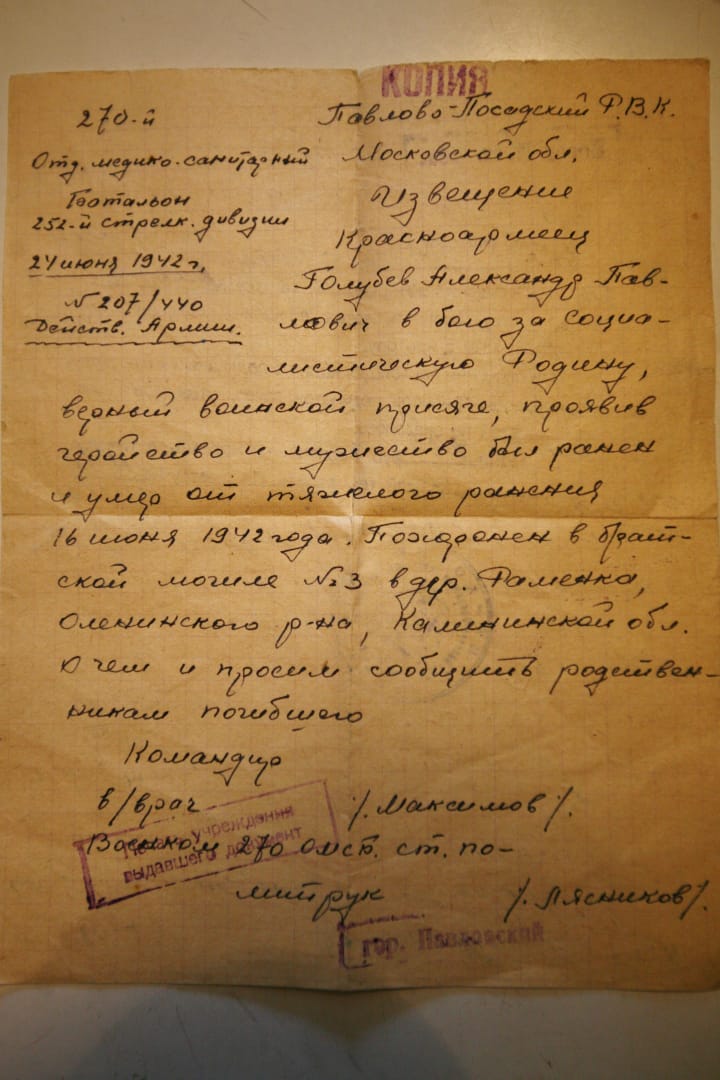 КОПИЯ
270-й
Отд. медико-санитарный
батальон
252-й стрелк. дивизии
24 июня 1942 г.
№ 207/440
Действ. Армии.
Павлово-Посадский Р.В.К.
Московской обл.
Извещение
Красноармеец
Голубев Александр Пав-
лович в бою за социа-
листическую Родину,
верный воинской присяге, проявив
геройство и мужество был ранен
и умер от тяжелого ранения
16 июня 1942 года. Похоронен в брат-
ской могиле №3 в дер. Раменка,
Оленинского р-на, Калининской обл.
О чем и просим сообщить родствен-
никам погибшего
Командир
в/врач /. Максимов /.
Военком 270 омсб. ст. по-
литрук /. Лясников /.
Печать учреждения
выдавшего документ
гор. Павловский